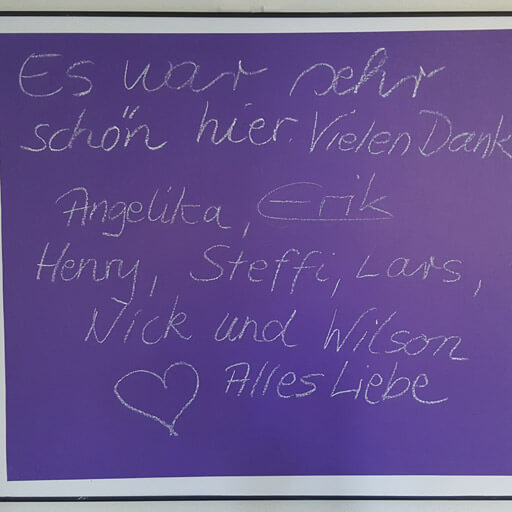 Es war sehr
schön hier. Vielen Dank
Angelika, Erik
Henry, Steffi, Lars,
Nick und Wilson
Alles Liebe